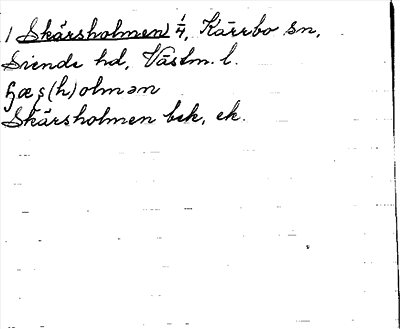 1 Skärsholmen 1/4, Kärrbo sn,
Siende hd, Västm. l.
ʃæʂ(h)olmən
Skärsholmen bek, ek.